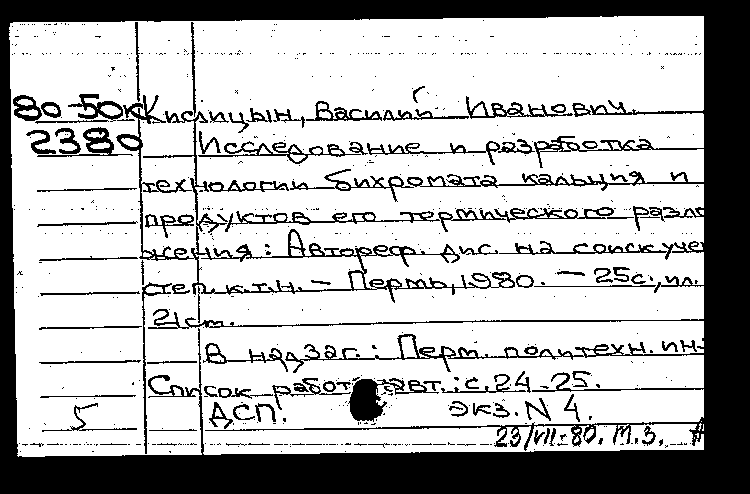 80-50к Кислицын, Василий Иванович.
2380 Исследование и разработка
технологии бихромата кальция и
продуктов его термического разло
жения: Автореф. дис. на соиск учен
степ. к.т.н. – Пермь, 1980. – 25с., ил.
21см.
В надзаг.: Перм. политехн. ин-
Список работ авт.: с. 24-25.
5 ДСП! экз. N 4.
23/VII-80. М.З.